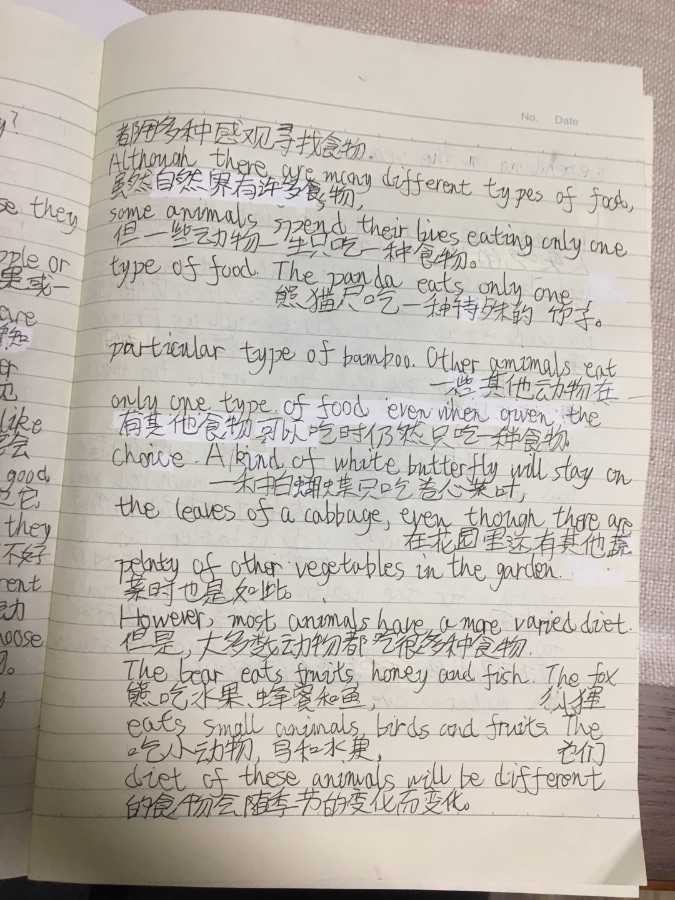 y?
No. Date
都用多种感观寻找食物.
Although there are many different types of food,
虽然自然界有许多食物,
se they
some animals spend their lives eating only one
但一些动物一生只吃一种食物。
ople or
type of food. The panda eats only one
果或一
熊猫只吃一种特殊的竹子。
are
particular type of bamboo. Other amimals eat
or
一些其他动物在
only one type of food even when given the
like
有其他食物可以吃时仍然只吃一种食物
choice. A kind of white butterfly will stay on
good
一种白蝴蝶只吃卷心菜时,
the leaves of a cabbage, even though there are
they
在花园里还有其他蔬
不好
pelnty of other vegetables in the garden.
rent
菜时也是如此。
动
However, most animals have a more varied diet.
hoose
但是,大多数动物都吃很多种食物.
The bear eats fruits, honey and fish. The fox
熊吃水果、蜂蜜和鱼, 狐狸
eats small animals, birds and fruits. The
吃小动物,鸟和水果, 它们
diet of these animals will be different
的食物会随季节的变化而变化。